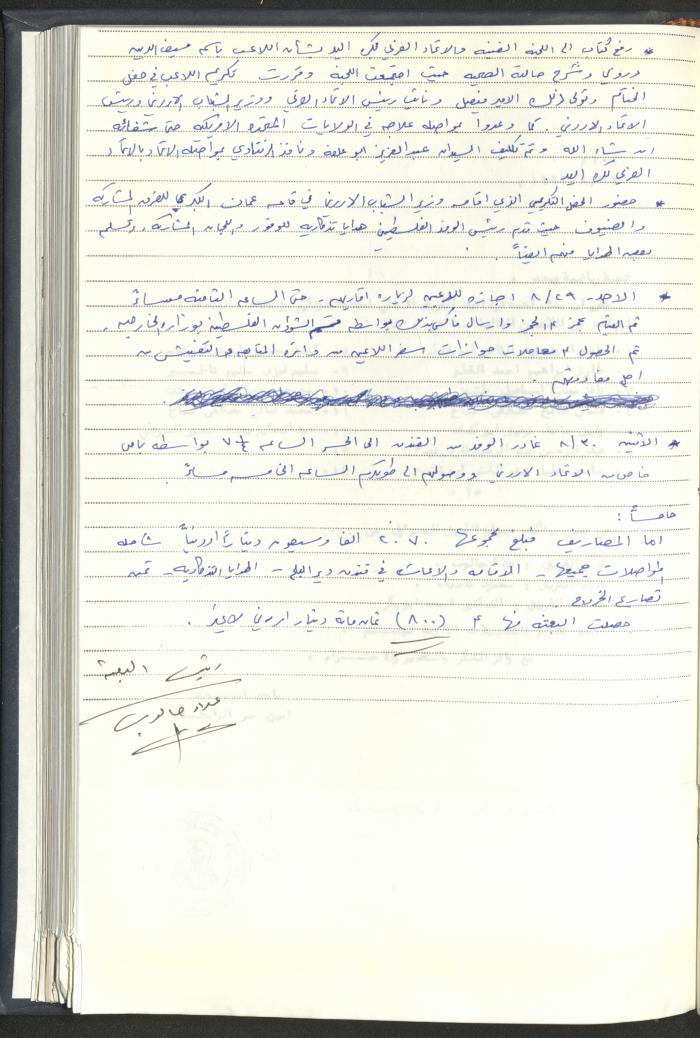 * رفع كتاب الى اللجنة الفنية والاتحاد العربي لكرة اليد بشأن اللاعب باسم
وشرح حالته الصحية حيث اجتمعت اللجنة وقررت تكريم اللاعب في حفل
الختام وتولى ذلك الامير فيصل ونائب رئيس الاتحاد العربي ووزير الشباب الاردني ورئيس
الاتحاد الاردني. كما وعدوا بمواصلة علاجه في الولايات المتحدة الامريكية حتى شفائه
ان شاء الله وتم تكليف السيدان عبد العزيز ابو علفة و بمواصلة الاتحاد
العربي لكرة اليد.
* حضور الحفل التكريمي الذي اقامه وزير الشباب الاردني في قاعة عمان الكبرى للفرق المشاركة
والضيوف حيث قدم رئيس الوفد الفلسطيني هدايا تذكارية للوفود واللجان المشاركة. وتسلم
بعض الهدايا منهم ايضاً.
* الاحد ٨/٢٩ اجازة للاعبين لزيارة اقاربهم. حتى الساعة الثامنة مساءً
ثم القيام الحجز وارسال فاكس بذلك بواسطة قسم الشؤون الفلسطينية بوزارة الخارجية.
تم الحصول معاملات جوازات سفر اللاعبين من دائرة المتابعة والتفتيش من
اجل مغادرتهم.
* الاثنين ٨/٣٠ غادر الوفد من الفندق الى الجسر الساعة ٧ ١/٢ بواسطة باص
خاص من الاتحاد الاردني ووصولهم الى طولكرم الساعة الخامسة مساءً.
خامساً:
اما المصاريف فبلغ مجموعها ٢٠٧٠ الفا وسبعون ديناراً اردنياً شاملة
المواصلات جميعها - الاقامة والاعاشة في فندق دير البلح - الهدايا التذكارية - ثمن
تصاريح الخروج
حصلت البعثة منها (٨٠٠) ثمان مائة دينار اردني لا غير.
رئيس البعثة